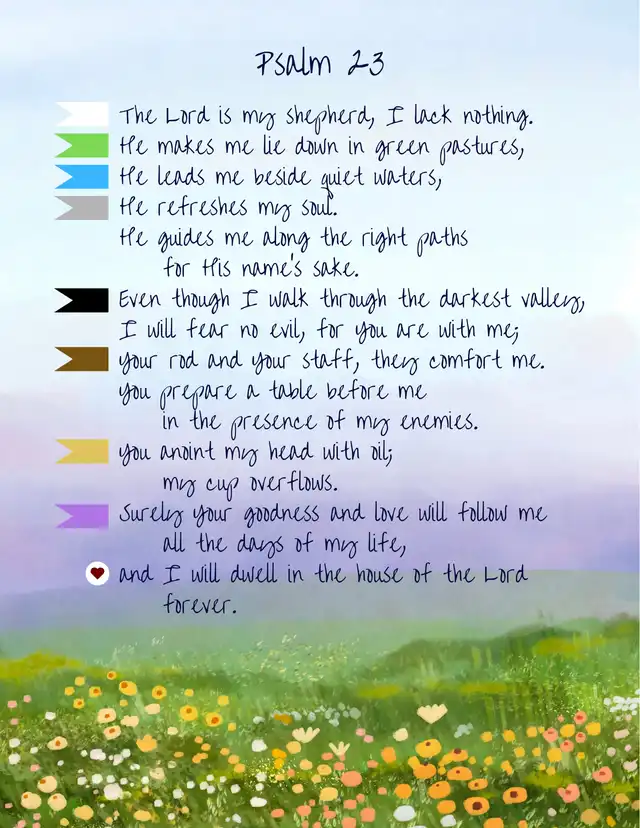 Psalm 23
The Lord is my shepherd, I lack nothing.
He makes me lie down in green pastures,
He leads me beside quiet waters,
He refreshes my soul.
He guides me along the right paths
for His name's sake.
Even though I walk through the darkest valley,
I will fear no evil, for you are with me;
your rod and your staff, they comfort me.
You prepare a table before me
in the presence of my enemies.
You anoint my head with oil;
my cup overflows.
Surely your goodness and love will follow me
all the days of my life,
and I will dwell in the house of the Lord
forever.